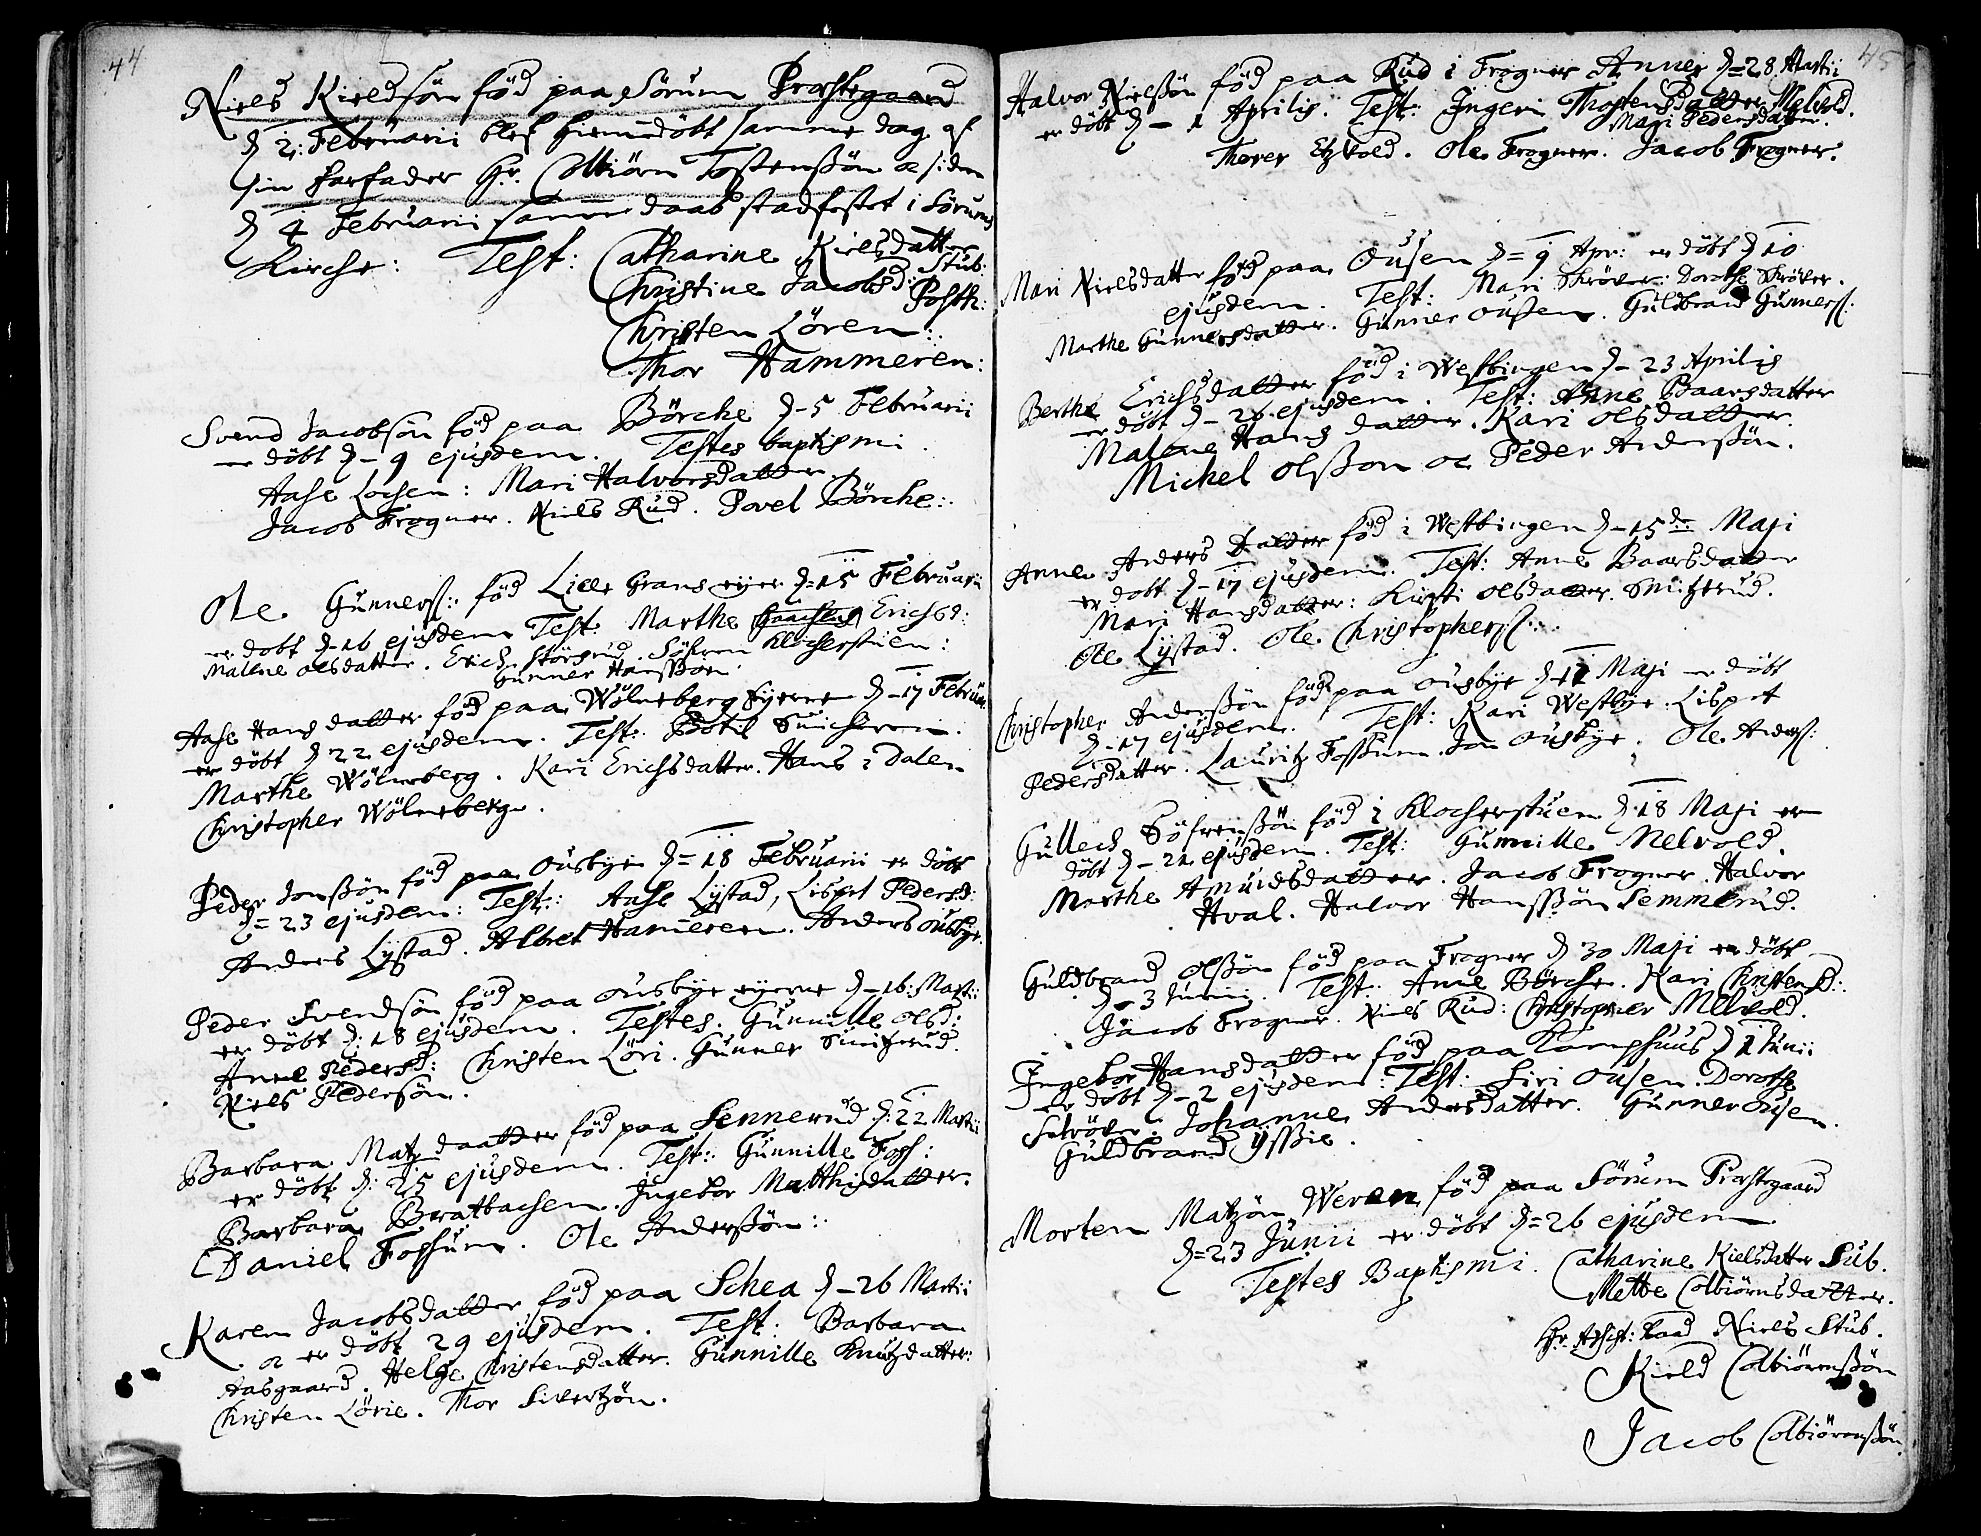 44
Niels Kieldsön föd paa Sörum Præstegaard
d 2: Februarii blef hiemmedöbt samme dag af
sin farfader Hr. Colbiörn Tostenssön oc siden
d 4 Februarii samme daab stadfestet i Sörums
Kirche: Test: Catharine Kielsdatter
Stub:
Christine Jacobsd: Posth:
Christen Lören:
Thor Hammeren:
Svend Jacobsön föd paa Börche d-5 Februarii
er döbt d-9 ejusdem. Testes baptismi.
Aase Losen: Mari Halvorsdatter
Jacob Frogner. Niels Rud. Povel Börche:
Ole Gunners: föd Lille Grans eyer d=15 Februarii
er döbt d-16 ejusdem Test: Marthe Erichsd:
Malene Olsdatter. Erich Störsrud. Söfren Klocherstuen:
Gunner Hanssön
Aase Hansdatter föd paa Wölneberg Eyerne d-17 Februa
er döbt d 22 ejusdem. Test: Bodil
Marthe Wölneberg. Kari Erichsdatter. Hans i Dalen
Christopher Wölneberg.
Peder Jonssön föd paa Ousbye d=18 Februarii er döbt
d=23 ejusdem: Test: Aase Lystad, Lispet Pedersd:
Anders Lystad. Albret Hameren. Anders Ousbye.
Peder Svendsön föd paa Ousbye eyerne d-16: Martii
er döbt d: 18 ejusdem. Testes. Gunnille Olsd:
Anne Pedersd: Christen Löri. Gunner Smitzrud.
Niels Pedersön.
Barbara Matzdaatter föd paa Sennerud d: 22 Martii
er döbt d: 25 ejusdem. Test: Gunnille Foss:
Barbara Bratbachen. Ingebor Matthisdatter.
Daniel Fossum. Ole Anderssön:
Karen Jacobsdatter föd paa Schea d-26 Martii
oc er döbt 29 ejusdem. Test: Barbara
Aasgaard. Helge Christensdatter. Gunnille Knutzdatter:
Christen Lörie. Thor Sivertzön.
45
Halvor Nielssön föd paa Rud i Frogner Annex d=28 Martii
er döbt d- 1 Aprilis. Test: Ingeri Thostensdatter Melvold.
Mari Pedersdatter.
Thorer Etzvold. Ole Frogner. Jacob Frogner.
Mari Nielsdatter föd paa Ousen d=9 Apr: er döbt d 10
ejusdem. Test: Mari Schröder. Dorothe Schröder.
Marthe Gunnersdatter. Gunner Ousen. Guldbrand Gunners:
Berthe Erichsdatter föd i Westbingen d-23 Aprilis
er döbt d-26 ejusdem. Test: Anne Baarsdatter
Malene Hansdatter. Kari Olsdatter.
Michel Olsson oc Peder Anderssön.
Anne Anders Datter föd i Westbingen d-15de Maji
er döbt d-17 ejusdem. Test: Anne Baarsdatter
Mari Hansdatter: Kirsti Olsdatter. Smitzrud.
Ole Lystad. Ole Christophers:
Christopher Anderssön föd paa Ousbye d 12 Maji er döbt
d-17 ejusdem. Test: Kari Westbye. Lispet
Pedersdatter. Lauritz Fossum. Jon Ousbye. Ole Anders:
Gulleck Söfrenssön föd i Klocherstuen d. 18 Maji er
döbt d-21 ejusdem. Test: Gunnille Melvold.
Marthe Amundsdatter. Jacob Frogner. Halvor
Hval. Halvor Hanssön Semmerud.
Guldbrand Olssön föd paa Frogner d 30 Maji er döbt
d-3 Junii. Test: Anne Börche. Kari Christensd:
Jacob Frogner. Niels Rud: Christopher Melvold.
Ingebor Hansdatter föd paa Kamphuus d 1 Junii
er döbt d-2 ejusdem: Test: Siri Ousen. Dorothe
Schröder. Johanne Andersdatter. Gunner Ousen.
Guldbrand Yssie.
Morten Matzön Weren föd paa Sörum Præstegaard
d=23 Junii er döbt d=26 ejusdem
Testes Baptismi. Catharine Kielsdatter Stub.
Mette Colbiörnsdatter.
Hr. Assist: Raad Niels Stub.
Kield Colbiörenssön
Jacob Colbiörenssön.